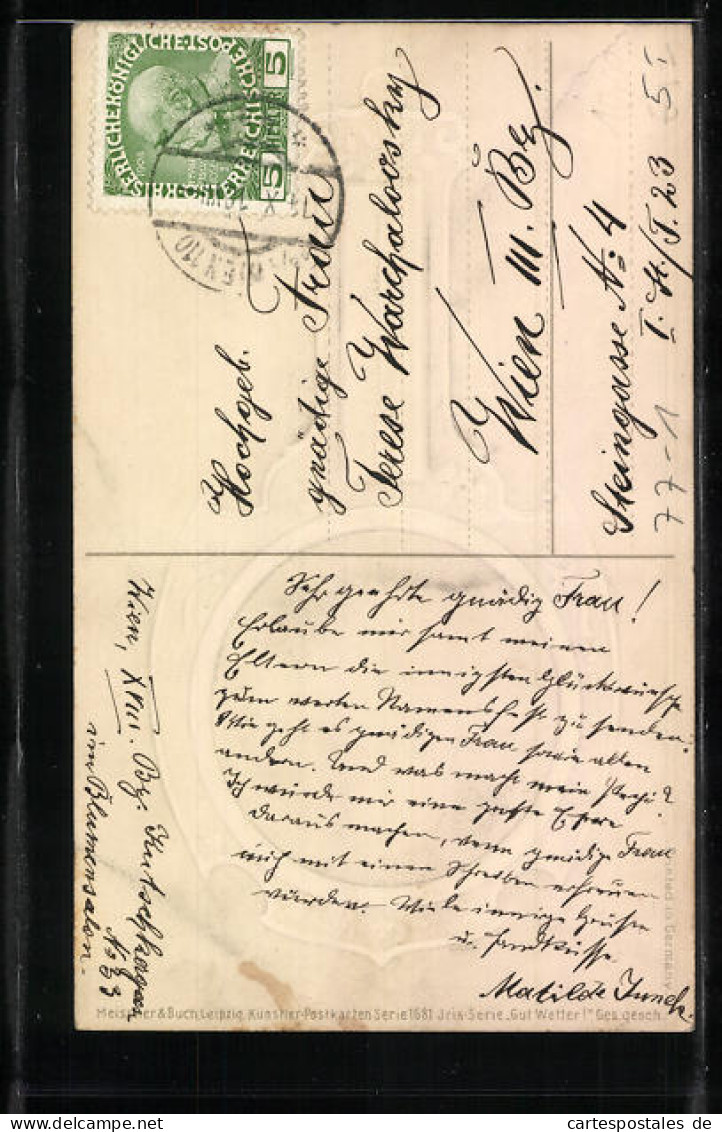 KAISERLICHE KÖNIGLICHE
ÖSTERREICHISCHE POST
5 HELLER 5
WIEN 110
Hochgeb.
gnädige Frau
Terese Warchalovsky
Wien III. Bz.
Steingasse No 4
I. St./T. 23
77-1
5
Sehr geehrte gnädig Frau!
Erlaube mir samt meinen
Eltern die innigsten Glückwünsche
zum werten Namensfest zu senden.
Wie geht es gnädigen Frau sowie allen
andern. Und was macht mein
Ich würde mir eine große Ehre
daraus machen, wenn gnädige Frau
mich mit einem Schreiben erfreuen
würden. Viele innige Grüße
u. Handküsse
Matilde
Wien, XVIII. Bz.
No 53
im Blumensalon.
Printed in Germany
Meissner & Buch, Leipzig. Künstler-Postkarten Serie 1681 Jrik-Serie „Gut Wetter!" Ges. gesch.
cartespostales de